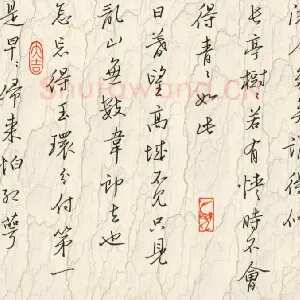 人多矣誰得似
長亭樹〻若有情時不會
得青〻如此
日暮望高城不見只見
亂山無數韋郎去也
怎忘得玉環分付第一
是早〻歸來怕紅萼
大吉